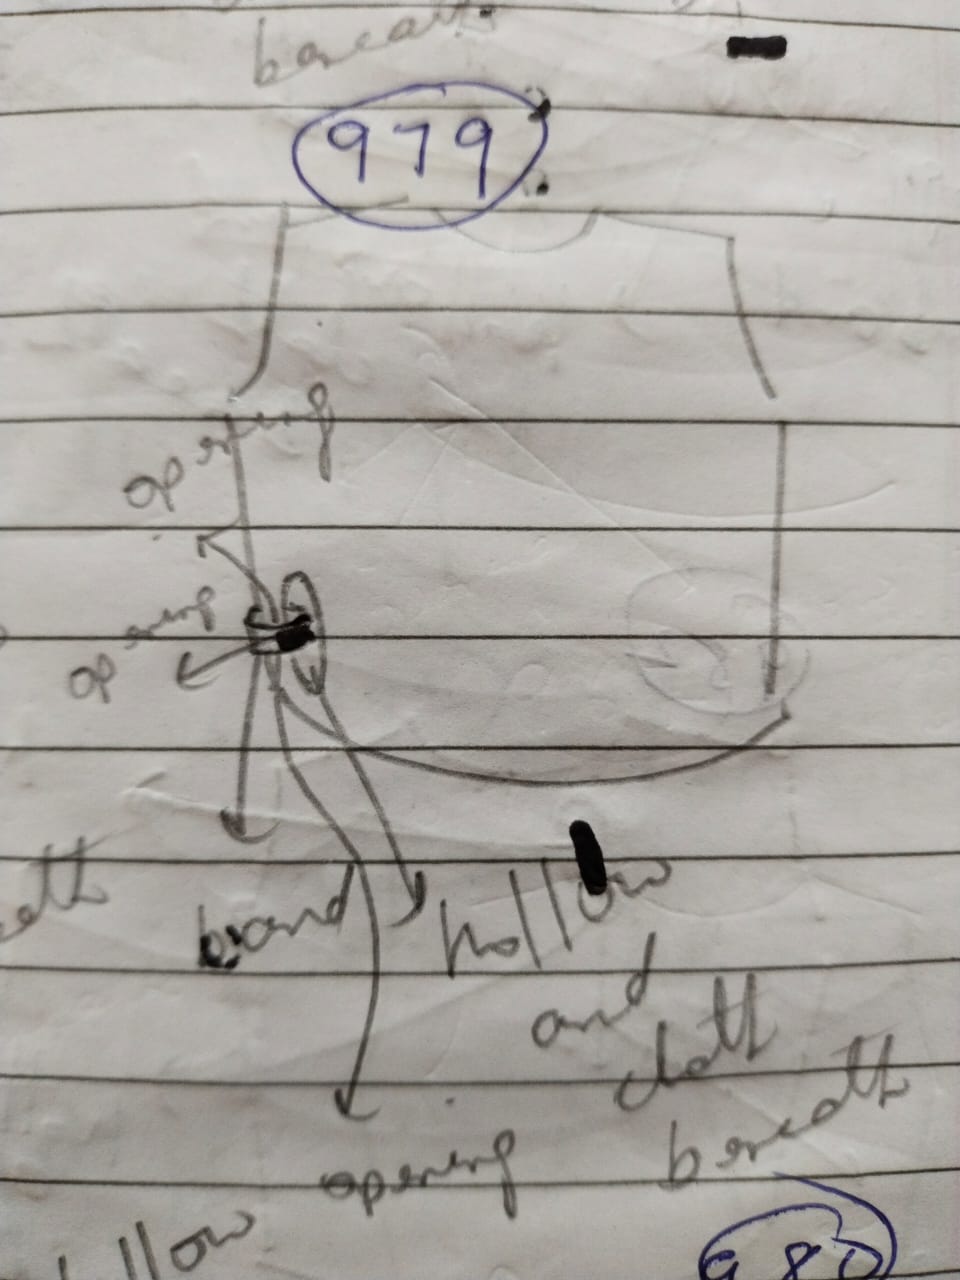 beneath
979
opening
opening
band
hollow
and
cloth
beneath
opening
980